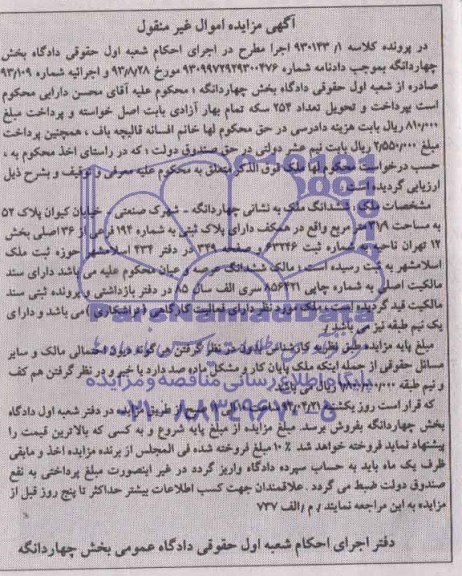 آگهی مزایده اموال غیر منقول
در پرونده کلاسه ۹۳۰۱۴۳/۱ اجرا مطرح در اجرای احکام شعبه اول حقوقی دادگاه بخش
چهاردانگه بموجب دادنامه شماره ۹۳۰۹۹۷۲۹۲۹۳۰۰۴۷۶ مورخ ۹۳/۸/۲۸ و اجرائیه شماره ۹۳/۱۰۹
صادره از شعبه اول حقوقی دادگاه بخش چهاردانگه ؛ محکوم علیه آقای محسن دارابی محکوم
است بپرداخت و تحویل تعداد ۲۵۴ سکه تمام بهار آزادی بابت اصل خواسته و پرداخت مبلغ
۸۱۰/۰۰۰ ریال بابت هزینه دادرسی در حق محکوم لها خانم افسانه قالیچه باف ، همچنین پرداخت
مبلغ ۲/۵۵۰/۰۰۰ ریال بابت نیم عشر دولتی در حق صندوق دولت ؛ که در راستای اخذ محکوم به ،
حسب درخواست محکوم لها ملک فوق الذکر متعلق به محکوم علیه معرفی و توقیف و بشرح ذیل
ارزیابی گردیده است
مشخصات ملک : ششدانگ ملک به نشانی چهاردانگه - شهرک صنعتی - خیابان کیوان پلاک ۵۲
به مساحت ۳۱/۹ متر مربع واقع در همکف دارای پلاک ثبتی به شماره ۱۹۴ فرعی از ۳۶ اصلی بخش
۱۲ تهران ناحیه به شماره ثبت ۶۳۲۴۶ و صفحه ۳۴۹ در دفتر ۴۳۴ اسلامشهر حوزه ثبت ملک
اسلامشهر به ثبت رسیده است ، مالک ششدانگ عرصه و اعیان محکوم علیه می باشد دارای سند
مالکیت اصلی به شماره چاپی ۸۵۶۴۲۱ سری الف سال ۸۵ در دفتر بازداشتی و پرونده ثبتی سند
مالکیت قید گردیده است ملک مورد نظر دارای فعالیت کارگاهی ( تراشکاری ) می باشد و دارای
یک نیم طبقه نیز می باشد .
مبلغ پایه مزایده طبق نظریه کارشناس بدون در نظر گرفتن هر گونه دیون احتمالی مالک و سایر
مسائل حقوقی از جمله اینکه ملک پایان کار و مشکل ماده صد دارد یا خیر و در نظر گرفتن هم کف
و نیم طبقه ریال می باشد
که قرار است روز یکشنبه از طریق مزایده در دفتر شعبه اول دادگاه
بخش چهاردانگه بفروش برسد. مبلغ مزایده از مبلغ پایه شروع و به کسی که بالاترین قیمت را
پیشنهاد نماید فروخته خواهد شد ۱۰٪ مبلغ فروخته شده فی المجلس از برنده مزایده اخذ و مابقی
ظرف یک ماه باید به حساب سپرده دادگاه واریز گردد در غیر اینصورت مبلغ پرداختی به نفع
صندوق دولت ضبط می گردد . علاقمندان جهت کسب اطلاعات بیشتر حداکثر تا پنج روز قبل از
مزایده به این مراجعه نمایند /. م / الف ۷۳۷
دفتر اجرای احکام شعبه اول حقوقی دادگاه عمومی بخش چهاردانگه
ParsNamadData
پایگاه اطلاع رسانی مناقصه و مزایده
۰۲۱-۸۸۳۴۹۶۷۰-۵